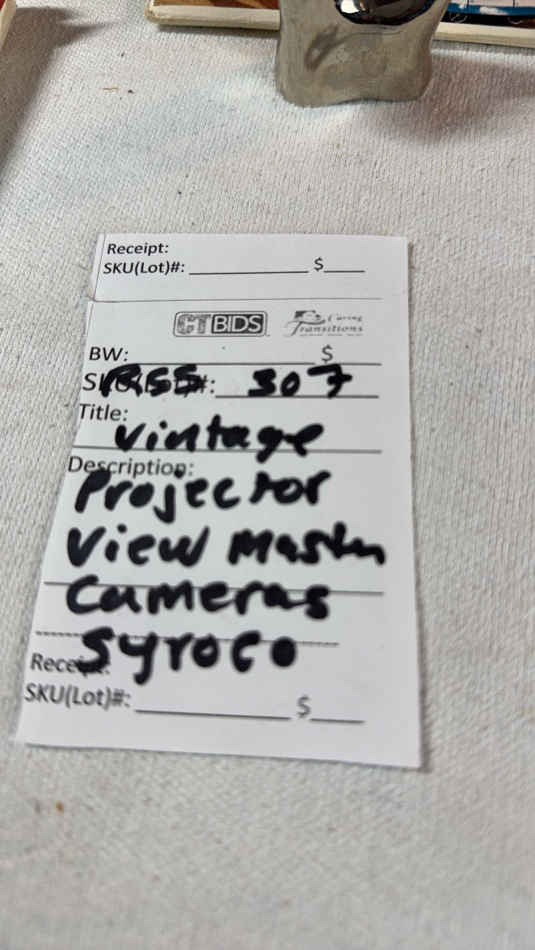 Receipt:
SKU(Lot)#: ____________ $____
CTBIDS Caring Transitions
BW: ____________ $____
SKU(Lot)#: RSS 307
Title:
Vintage
Description:
Projector
View Master
Cameras
Syroco
Receipt:
SKU(Lot)#: ____________ $____